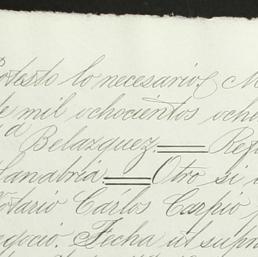 Protesto lo necesario, M
de mil ochocientos ocho
a Belazquez. Re
Sanabria Otro si
Notario Carlos Carpio
negocio. Fecha ut supr